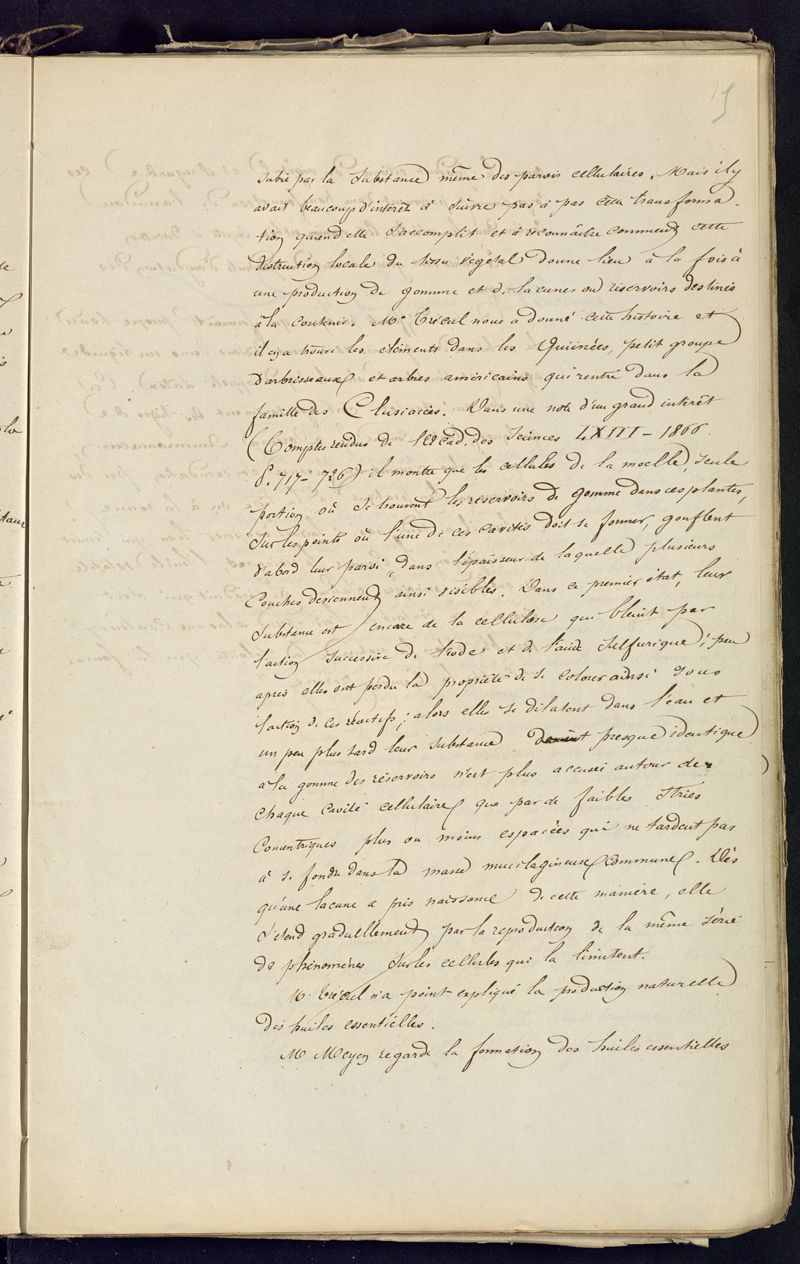 15
subie par la substance même des parois cellulaires. Mais il y
avait beaucoup d'intérêt à suivre pas à pas cette transforma-
tion quand elle s'accomplit et à reconnaître comment cette
destruction locale du tissu végétal donne lieu à la fois à
une production de gomme et de lacunes ou réservoirs destinés
à la contenir. Mr Trécul nous a donné cette histoire et
il en a trouvé les éléments dans les Quiinées, petit groupe
d'arbrisseaux et arbres américains qui rentre dans la
famille des Clusiacées. Dans une note d'un grand intérêt
(Comptes rendus de l'Acad. des Sciences LXIII - 1866.
P. 717-726) il montre que les cellules de la moelle, seule
portion où se trouvent les réservoirs de gomme dans ces plantes,
sur les points où l'une de ces cavités doit se former, gonflent
d'abord leur paroi, dans l'épaisseur de laquelle plusieurs
couches deviennent ainsi visibles. Dans ce premier état, leur
substance est encore de la cellulose qui bleuit par
l'action successive de l'iode et de l'acide sulfurique; peu
après elles ont perdu la propriété de se colorer ainsi sous
l'action de ces réactifs; alors elles se dilatent dans l'eau et
un peu plus tard leur substance presque identique
à la gomme des réservoirs n'est plus accusée autour de
chaque cavité cellulaire que par de faibles stries
concentriques plus ou moins espacées qui ne tardent pas
à se fondre dans la masse mucilagineuse commune. Dès
qu'une lacune a pris naissance de cette manière, elle
s'étend graduellement par la reproduction de la même série
de phénomènes sur les cellules qui la limitent.
M. Trécul n'a point expliqué la production naturelle
des huiles essentielles.
Mr Meyen regarde la formation des huiles essentielles